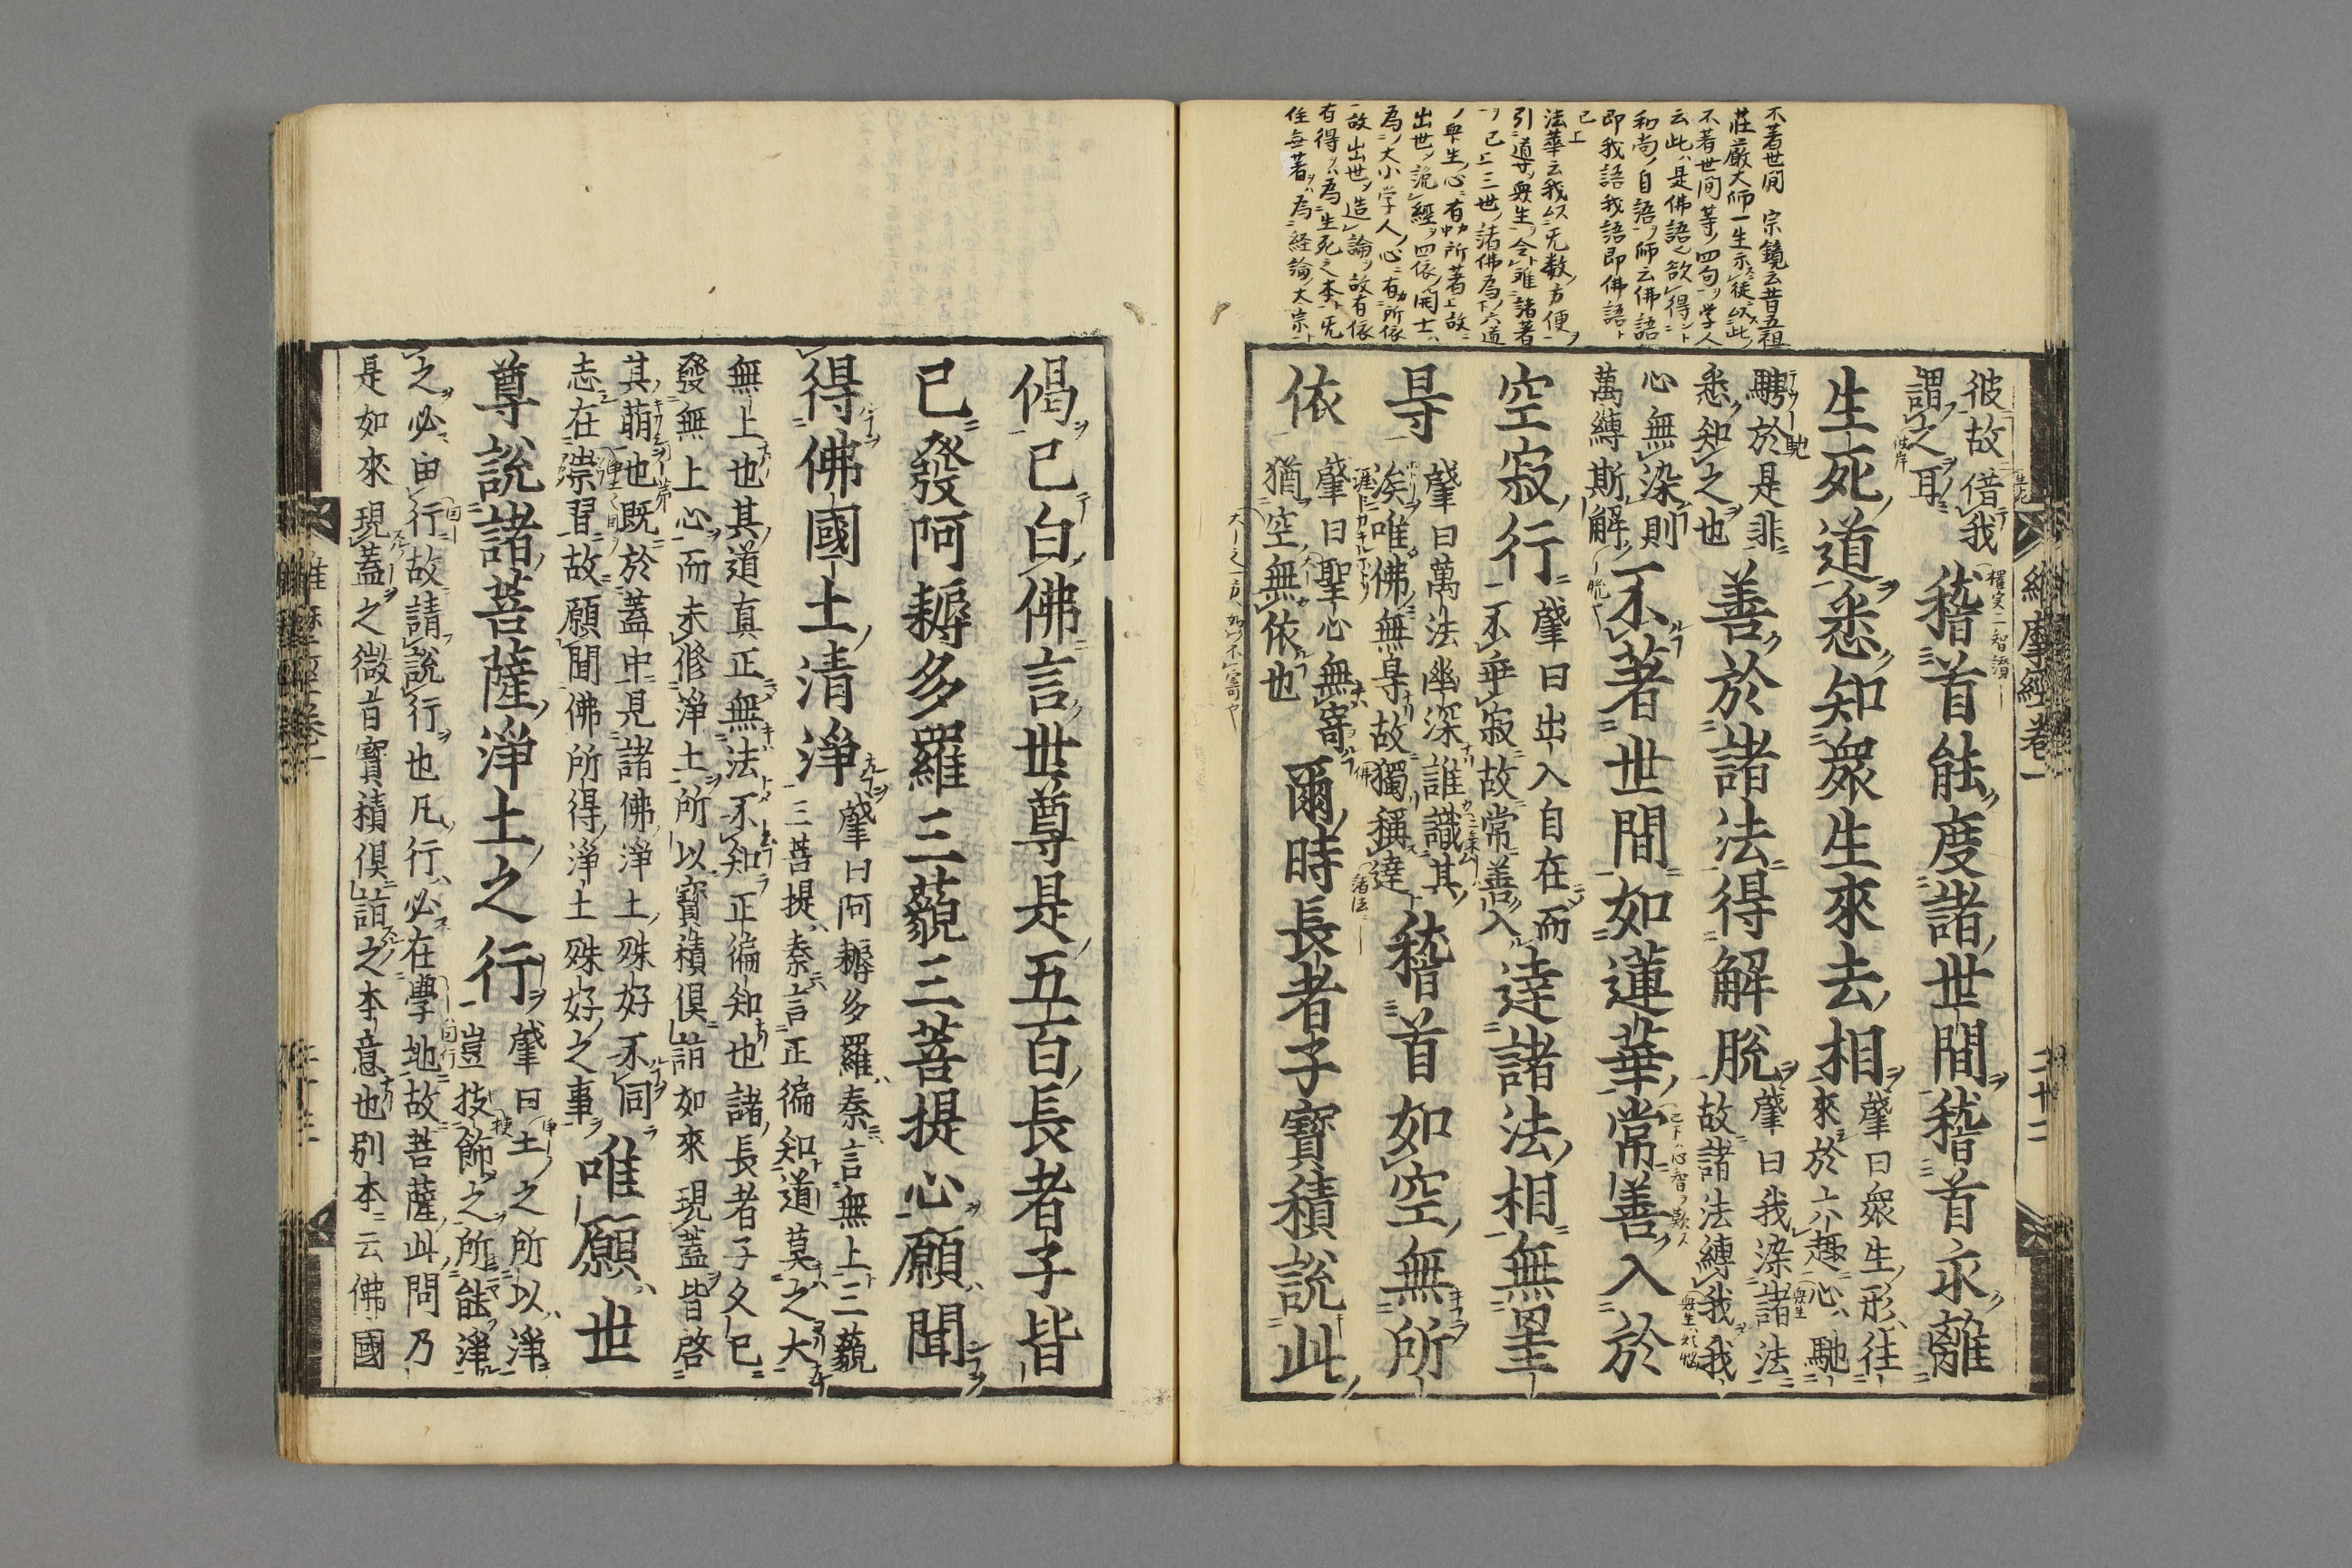 不著世間 宗鏡云昔五祖
莊嚴大師一生示徒以此
不著世間等四句學人
云此是佛語欲得
和尚自語師云佛語
即我語我語即佛語
已上
法華云我以无数方便
引導衆生令離諸著
已上三世諸佛為六道
衆生心有所著故
出世說經四依開士
為大小学人心有所依
故出世造論故有依
有得為生死之本无
住無著為経論大宗
維摩經卷一 二十二
彼故借我
謂之耳
稽首能度諸世間稽首永離
生死道悉知衆生來去相
肇曰衆生形往
來於六趣心馳
騁於是非
悉知之也
善於諸法得解脫
肇曰我染諸法
故諸法縛我我
心無染則
萬縛斯解
不著世間如蓮華常善入於
空寂行
肇曰出入自在而
不乖寂故常善入
達諸法相無罣
㝵
肇曰萬法幽深誰識其
涘唯佛無㝵故獨稱達
稽首如空無所
依
肇曰聖心無寄
猶空無依也
爾時長者子寶積說此
偈已白佛言世尊是五百長者子皆
已發阿耨多羅三藐三菩提心願聞
得佛國土清淨
肇曰阿耨多羅秦言無上三藐
三菩提秦言正徧知道莫之大
無上也其道真正無法不知正徧知也諸長者子久已
發無上心而未修淨土所以寶積俱詣如來現蓋皆啓
其萠也既於蓋中見諸佛淨土殊好不同
志在崇習故願聞佛所得淨土殊好之事
唯願世
尊說諸菩薩淨土之行
肇曰土之所以淨
豈技飾之所能淨
之必由行故請說行也凡行必在學地故菩薩此問乃
是如來現蓋之微旨寶積俱詣之本意也別本云佛國